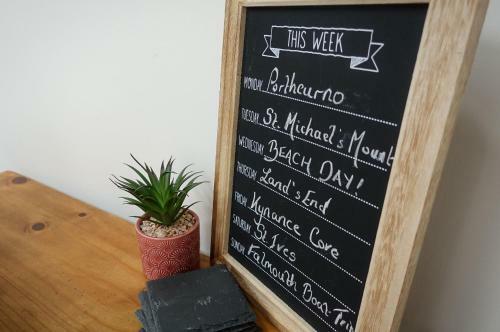 THIS WEEK
MONDAY Porthcurno
TUESDAY St. Michael's Mount
WEDNESDAY BEACH DAY!
THURSDAY Land's End
FRIDAY Kynance Cove
SATURDAY St Ives
SUNDAY Falmouth Boat Trip